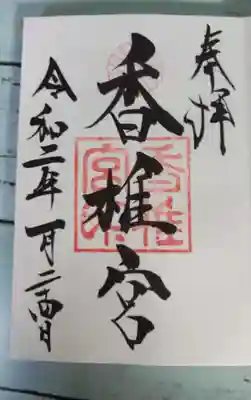 奉拝
香椎宮
令和二年一月二十四日